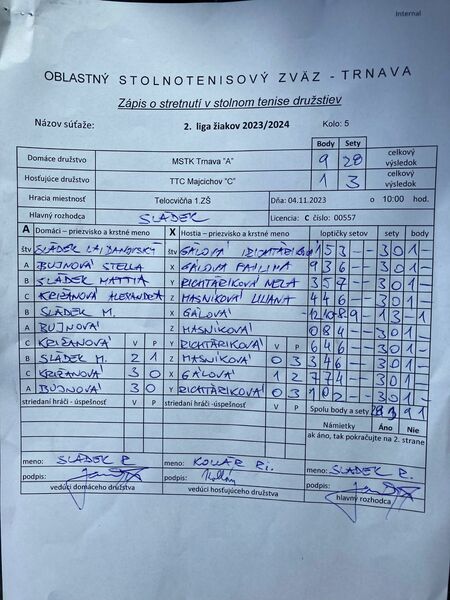 Internal
OBLASTNÝ STOLNOTENISOVÝ ZVÄZ - TRNAVA
Zápis o stretnutí v stolnom tenise družstiev
Názov súťaže: 2. liga žiakov 2023/2024 Kolo: 5
Body Sety
Domáce družstvo MSTK Trnava "A" 9 28 celkový výsledok
Hosťujúce družstvo TTC Majcichov "C" 1 3 celkový výsledok
Hracia miestnosť Telocvičňa 1.ZŠ Dňa: 04.11.2023 o 10:00 hod.
Hlavný rozhodca SLÁDEK Licencia: C číslo: 00557
A Domáci – priezvisko a krstné meno X Hostia – priezvisko a krstné meno loptičky setov sety body
štv SLÁDEK štv GÁLOVÁ 1 5 3 - - 3 0 1 -
A BUJNOVÁ STELLA X GÁLOVÁ PAULÍNA 9 3 6 - - 3 0 1 -
B SLÁDEK MATTIA Y RICHTÁRIKOVÁ NELA 3 5 7 - - 3 0 1 -
C KRIŽANOVÁ ALEXANDRA Z MASNIKOVÁ LILIANA 4 4 6 - - 3 0 1 -
B SLÁDEK M. X GÁLOVÁ -12 10 -8 -9 - 1 3 - 1
A BUJNOVÁ Z MASNIKOVÁ 0 8 4 - - 3 0 1 -
C KRIŽANOVÁ V P Y RICHTÁRIKOVÁ V P 6 4 6 - - 3 0 1 -
B SLÁDEK M. 2 1 Z MASNIKOVÁ 0 3 3 4 6 - - 3 0 1 -
C KRIŽANOVÁ 3 0 X GÁLOVÁ 1 2 7 7 4 - - 3 0 1 -
A BUJNOVÁ 3 0 Y RICHTÁRIKOVÁ 0 3 - - 3 0 1 -
striedaní hráči - úspešnosť V P striedaní hráči -úspešnosť V P Spolu body a sety 28 3 9 1
Námietky Áno Nie
ak áno, tak pokračujte na 2. strane
meno: SLÁDEK R. meno: KOLLÁR Ri. meno: SLÁDEK R.
podpis: podpis: podpis:
vedúci domáceho družstva vedúci hosťujúceho družstva hlavný rozhodca